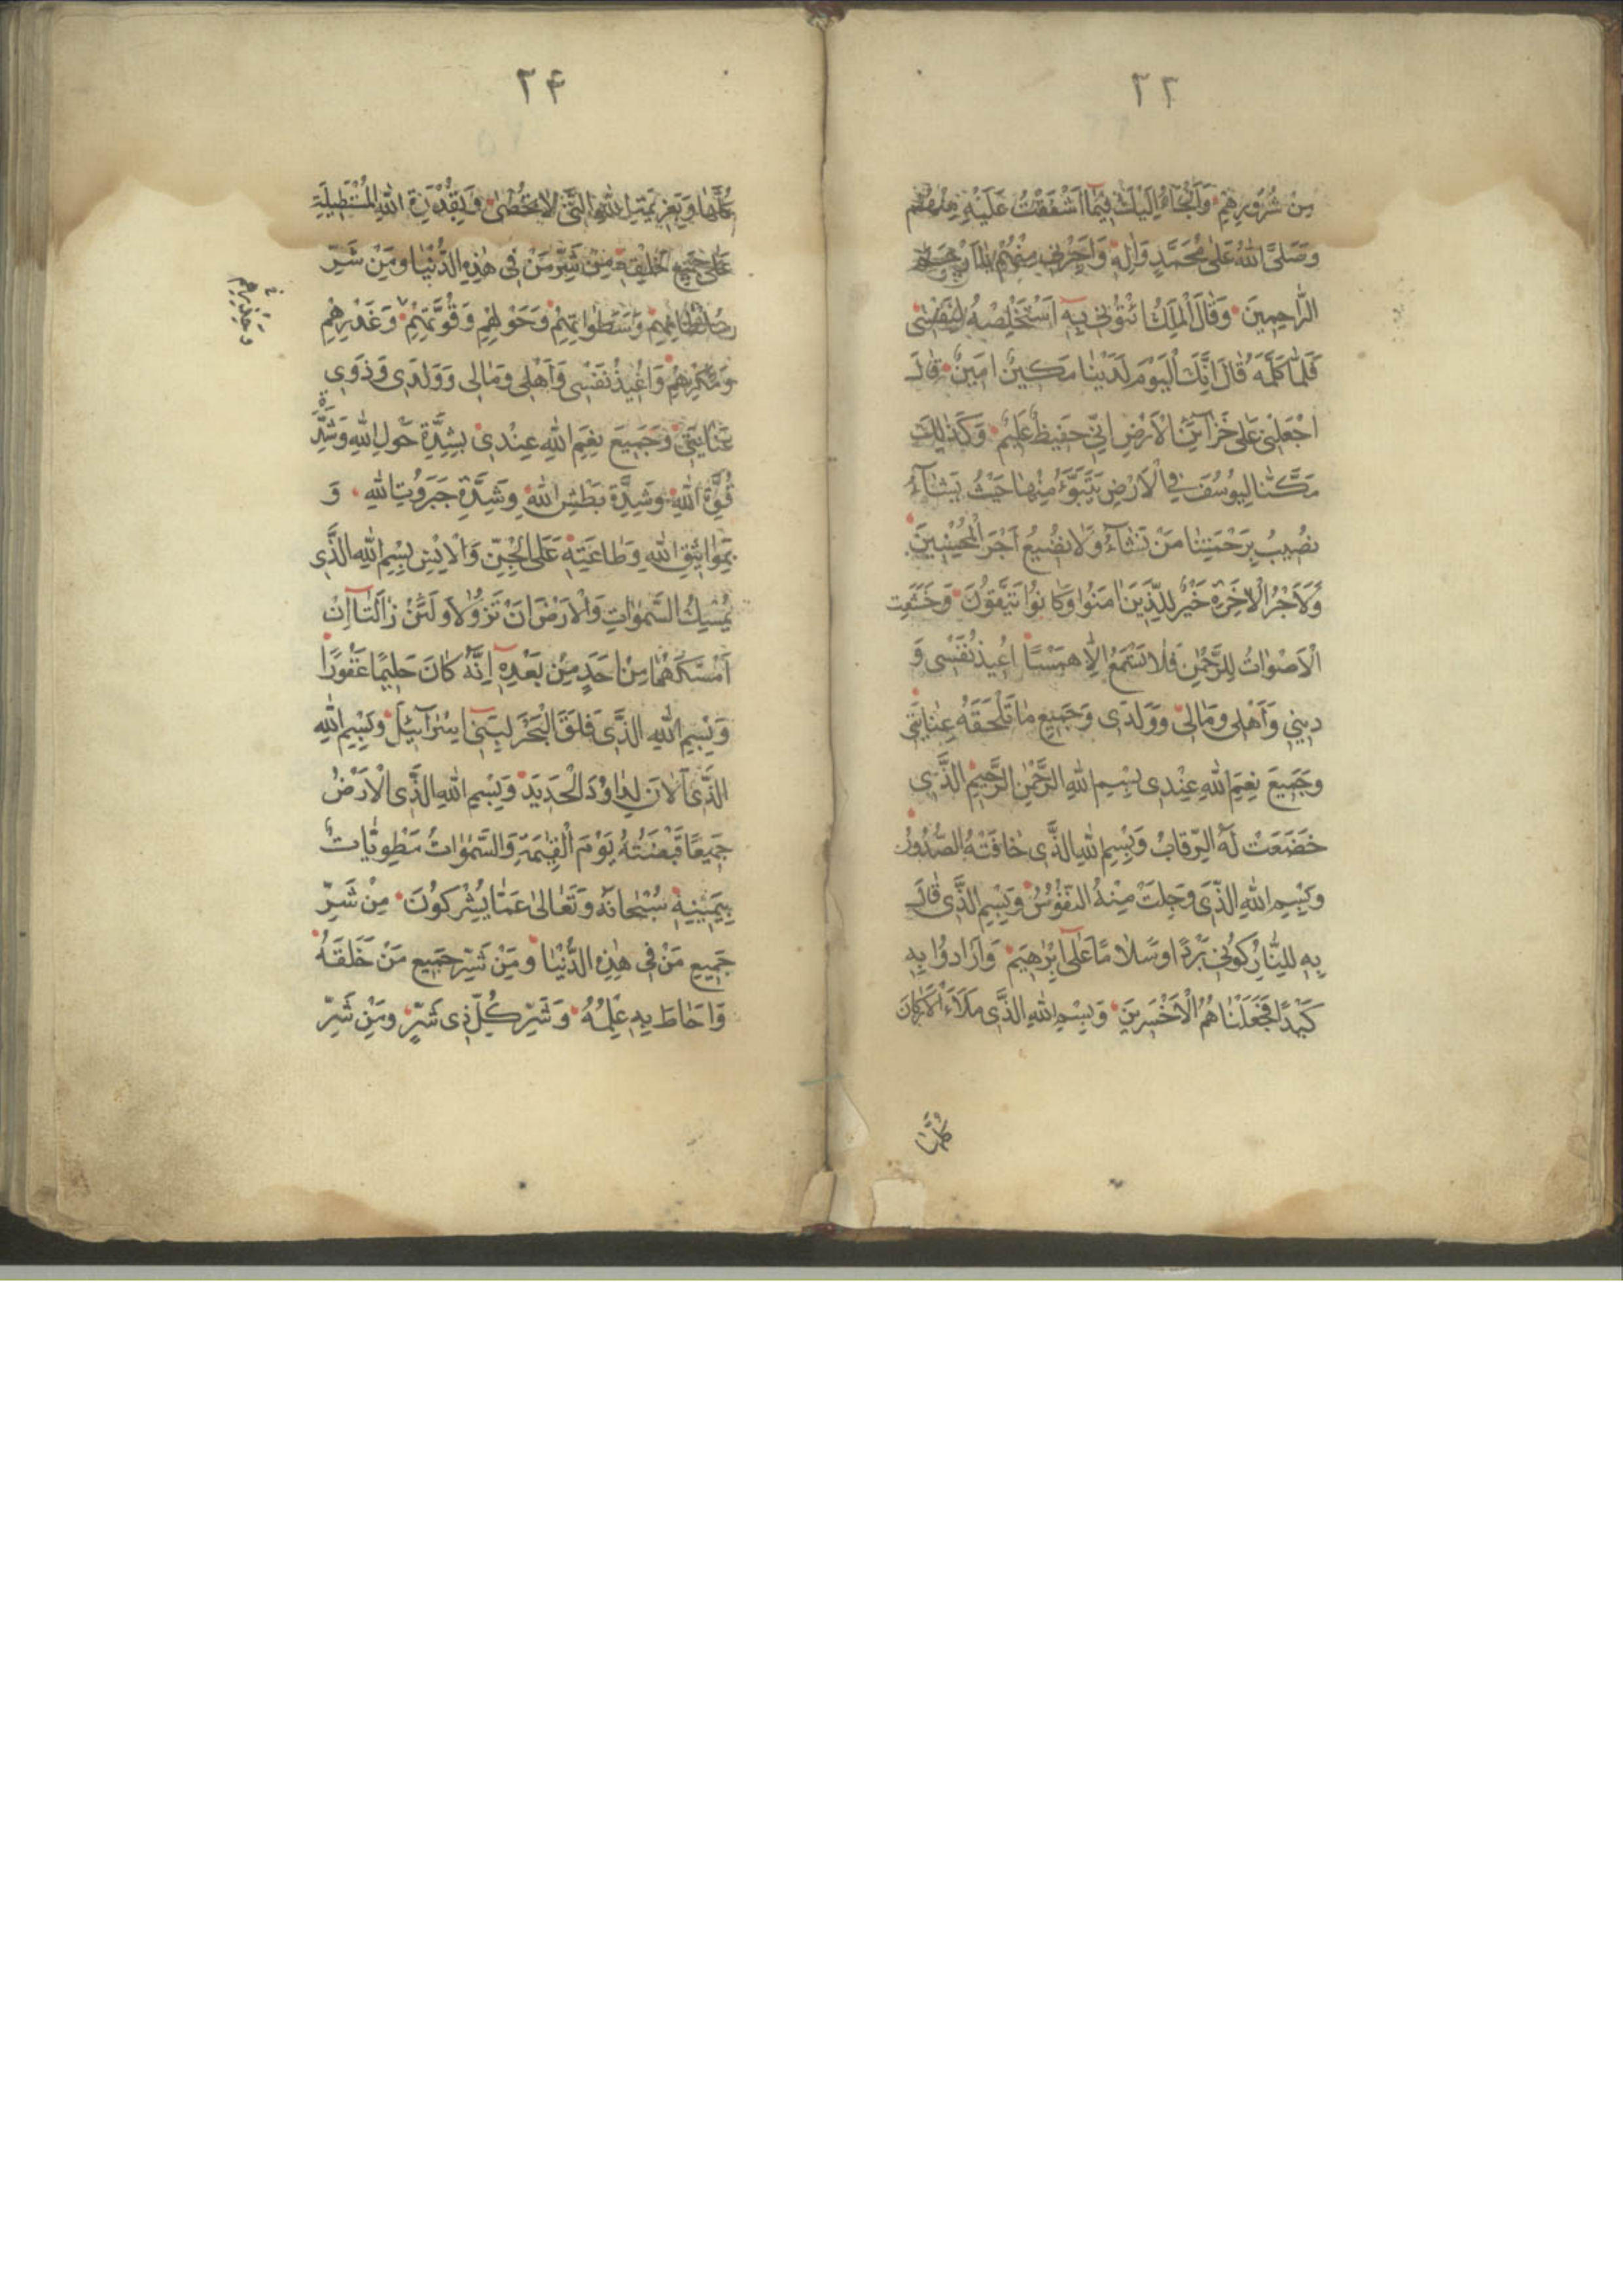 ٢٣
مِنْ شُرُورِهِمْ وَاَلْجَاُ اِلَيْكَ فِيمَا اَشْفَقْتُ عَلَيْهِ مِنْهُمْ
وَصَلَّى اللهُ عَلٰى مُحَمَّدٍ وَاٰلِهِ وَاَجِرْنِي مِنْهُمْ يٰا اَرْحَمَ
الرَّاحِمِينَ وَقٰالَ الْمَلِكُ ائْتُونِي بِهِ اَسْتَخْلِصْهُ لِنَفْسِي
فَلَمّٰا كَلَّمَهُ قٰالَ اِنَّكَ الْيَوْمَ لَدَيْنٰا مَكِينٌ اَمِينٌ قٰالَ
اجْعَلْنِي عَلٰى خَزٰآئِنِ الْاَرْضِ اِنِّي حَفِيظٌ عَلِيمٌ وَكَذٰلِكَ
مَكَّنّٰا لِيُوسُفَ فِي الْاَرْضِ يَتَبَوَّءُ مِنْهٰا حَيْثُ يَشٰآءُ
نُصِيبُ بِرَحْمَتِنٰا مَنْ نَشٰآءُ وَلٰا نُضِيعُ اَجْرَ الْمُحْسِنِينَ
وَلَاَجْرُ الْاٰخِرَةِ خَيْرٌ لِلَّذِينَ اٰمَنُوا وَكٰانُوا يَتَّقُونَ وَخَشَعَتِ
الْاَصْوٰاتُ لِلرَّحْمٰنِ فَلٰا تَسْمَعُ اِلّٰا هَمْسًا اُعِيذُ نَفْسِي وَ
دِينِي وَاَهْلِي وَمٰالِي وَوَلَدِي وَجَمِيعَ مٰا تَلْحَقُهُ عِنٰايَتِي
وَجَمِيعَ نِعَمِ اللهِ عِنْدِي بِسْمِ اللهِ الرَّحْمٰنِ الرَّحِيمِ الَّذِي
خَضَعَتْ لَهُ الرِّقٰابُ وَبِسْمِ اللهِ الَّذِي خٰافَتْهُ الصُّدُورُ
وَبِسْمِ اللهِ الَّذِي وَجِلَتْ مِنْهُ النُّفُوسُ وَبِسْمِ الَّذِي قٰالَ
بِهِ لِلنّٰارِ كُونِي بَرْدًا وَسَلٰامًا عَلٰى اِبْرٰهِيمَ وَاَرٰادُوا بِهِ
كَيْدًا فَجَعَلْنٰاهُمُ الْاَخْسَرِينَ وَبِسْمِ اللهِ الَّذِي مَلَاَءَ الْاَرْكٰانَ
كُلَّهٰا
٢٤
كُلَّهٰا وَبِعَزِيمَةِ اللهِ الَّتِي لٰا تُحْصٰى وَبِقُدْرَةِ اللهِ الْمُسْتَطِيلَةِ
عَلٰى جَمِيعِ خَلْقِهِ مِنْ شَرِّ مَنْ فِي هٰذِهِ الدُّنْيٰا وَمِنْ شَرِّ
سُلْطٰانِهِمْ وَسَطَوٰاتِهِمْ وَحَوْلِهِمْ وَقُوَّتِهِمْ وَغَدْرِهِمْ
وَمَكْرِهِمْ وَاُعِيذُ نَفْسِي وَاَهْلِي وَمٰالِي وَوَلَدِي وَذَوِي
عِنٰايَتِي وَجَمِيعَ نِعَمِ اللهِ عِنْدِي بِشِدَّةِ حَوْلِ اللهِ وَشِدَّةِ
قُوَّةِ اللهِ وَشِدَّةِ بَطْشِ اللهِ وَشِدَّةِ جَبَرُوتِ اللهِ وَ
بِمَوٰاثِيقِ اللهِ وَطٰاعَتِهِ عَلَى الْجِنِّ وَالْاِنْسِ بِسْمِ اللهِ الَّذِي
يُمْسِكُ السَّمٰوٰاتِ وَالْاَرْضَ اَنْ تَزُولٰا وَلَئِنْ زٰالَتٰا اِنْ
اَمْسَكَهُمٰا مِنْ اَحَدٍ مِنْ بَعْدِهِ اِنَّهُ كٰانَ حَلِيمًا غَفُورًا
وَبِسْمِ اللهِ الَّذِي فَلَقَ الْبَحْرَ لِبَنِي اِسْرٰآئِيلَ وَبِسْمِ اللهِ
الَّذِي اَلٰانَ لِدٰاوُدَ الْحَدِيدَ وَبِسْمِ اللهِ الَّذِي الْاَرْضُ
جَمِيعًا قَبْضَتُهُ يَوْمَ الْقِيٰمَةِ وَالسَّمٰوٰاتُ مَطْوِيّٰاتٌ
بِيَمِينِهِ سُبْحٰانَهُ وَتَعٰالٰى عَمّٰا يُشْرِكُونَ مِنْ شَرِّ
جَمِيعِ مَنْ فِي هٰذِهِ الدُّنْيٰا وَمِنْ شَرِّ جَمِيعِ مَنْ خَلَقَهُ
وَاَحٰاطَ بِهِ عِلْمُهُ وَشَرِّ كُلِّ ذِي شَرٍّ وَمِنْ شَرِّ